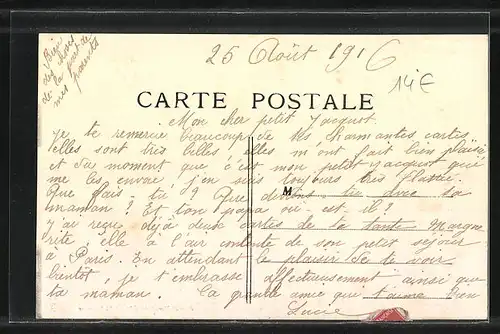 Bien
des choses
de la part de
mes parents
25 Août 1916
14€
CARTE POSTALE
Mon cher petit Jacquot.
Je te remercie beaucoup de tes charmantes cartes
elles sont très belles elles m'ont fait bien plaisir
et du moment que c'est mon petit Jacquot qui
me les envoie j'en suis toujours très flattée.
Que fais-tu? Que deviens tu avec ta
M
maman? Et ton papa où est il?
J'ai reçu déjà deux cartes de ta tante Margue
rite elle a l'air contente de son petit séjour
à Paris. En attendant le plaisir de te voir
bientôt, je t'embrasse affectueusement ainsi que
ta maman. Ta grande amie que t'aime bien
Lucie